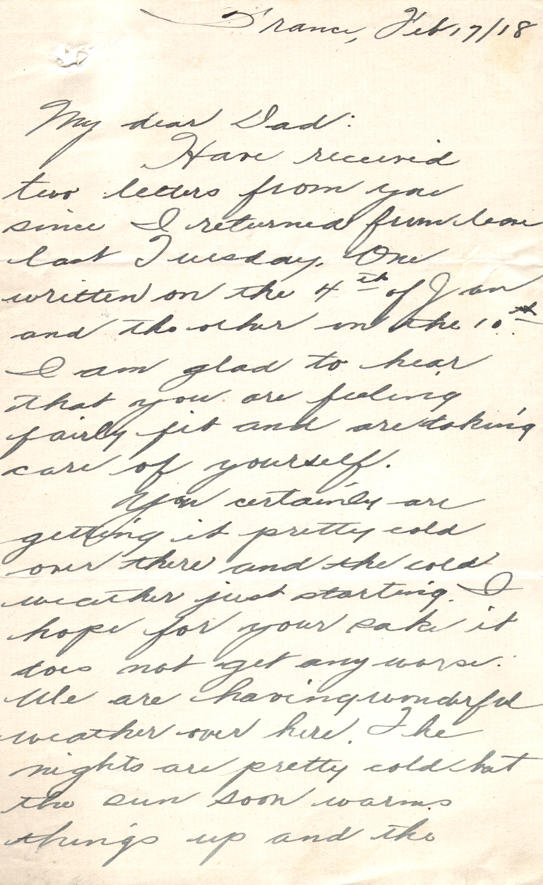 France, Feb 17/18
My dear Dad:
Have received
two letters from you
since I returned from leave
last Tuesday. One
written on the 4th of Jan
and the other on the 10th
I am glad to hear
that you are feeling
fairly fit and are taking
care of yourself.
You certainly are
getting it pretty cold
over there and the cold
weather just starting. I
hope for your sake it
does not get any worse.
We are having wonderful
weather over here. The
nights are pretty cold but
the sun soon warms
things up and the